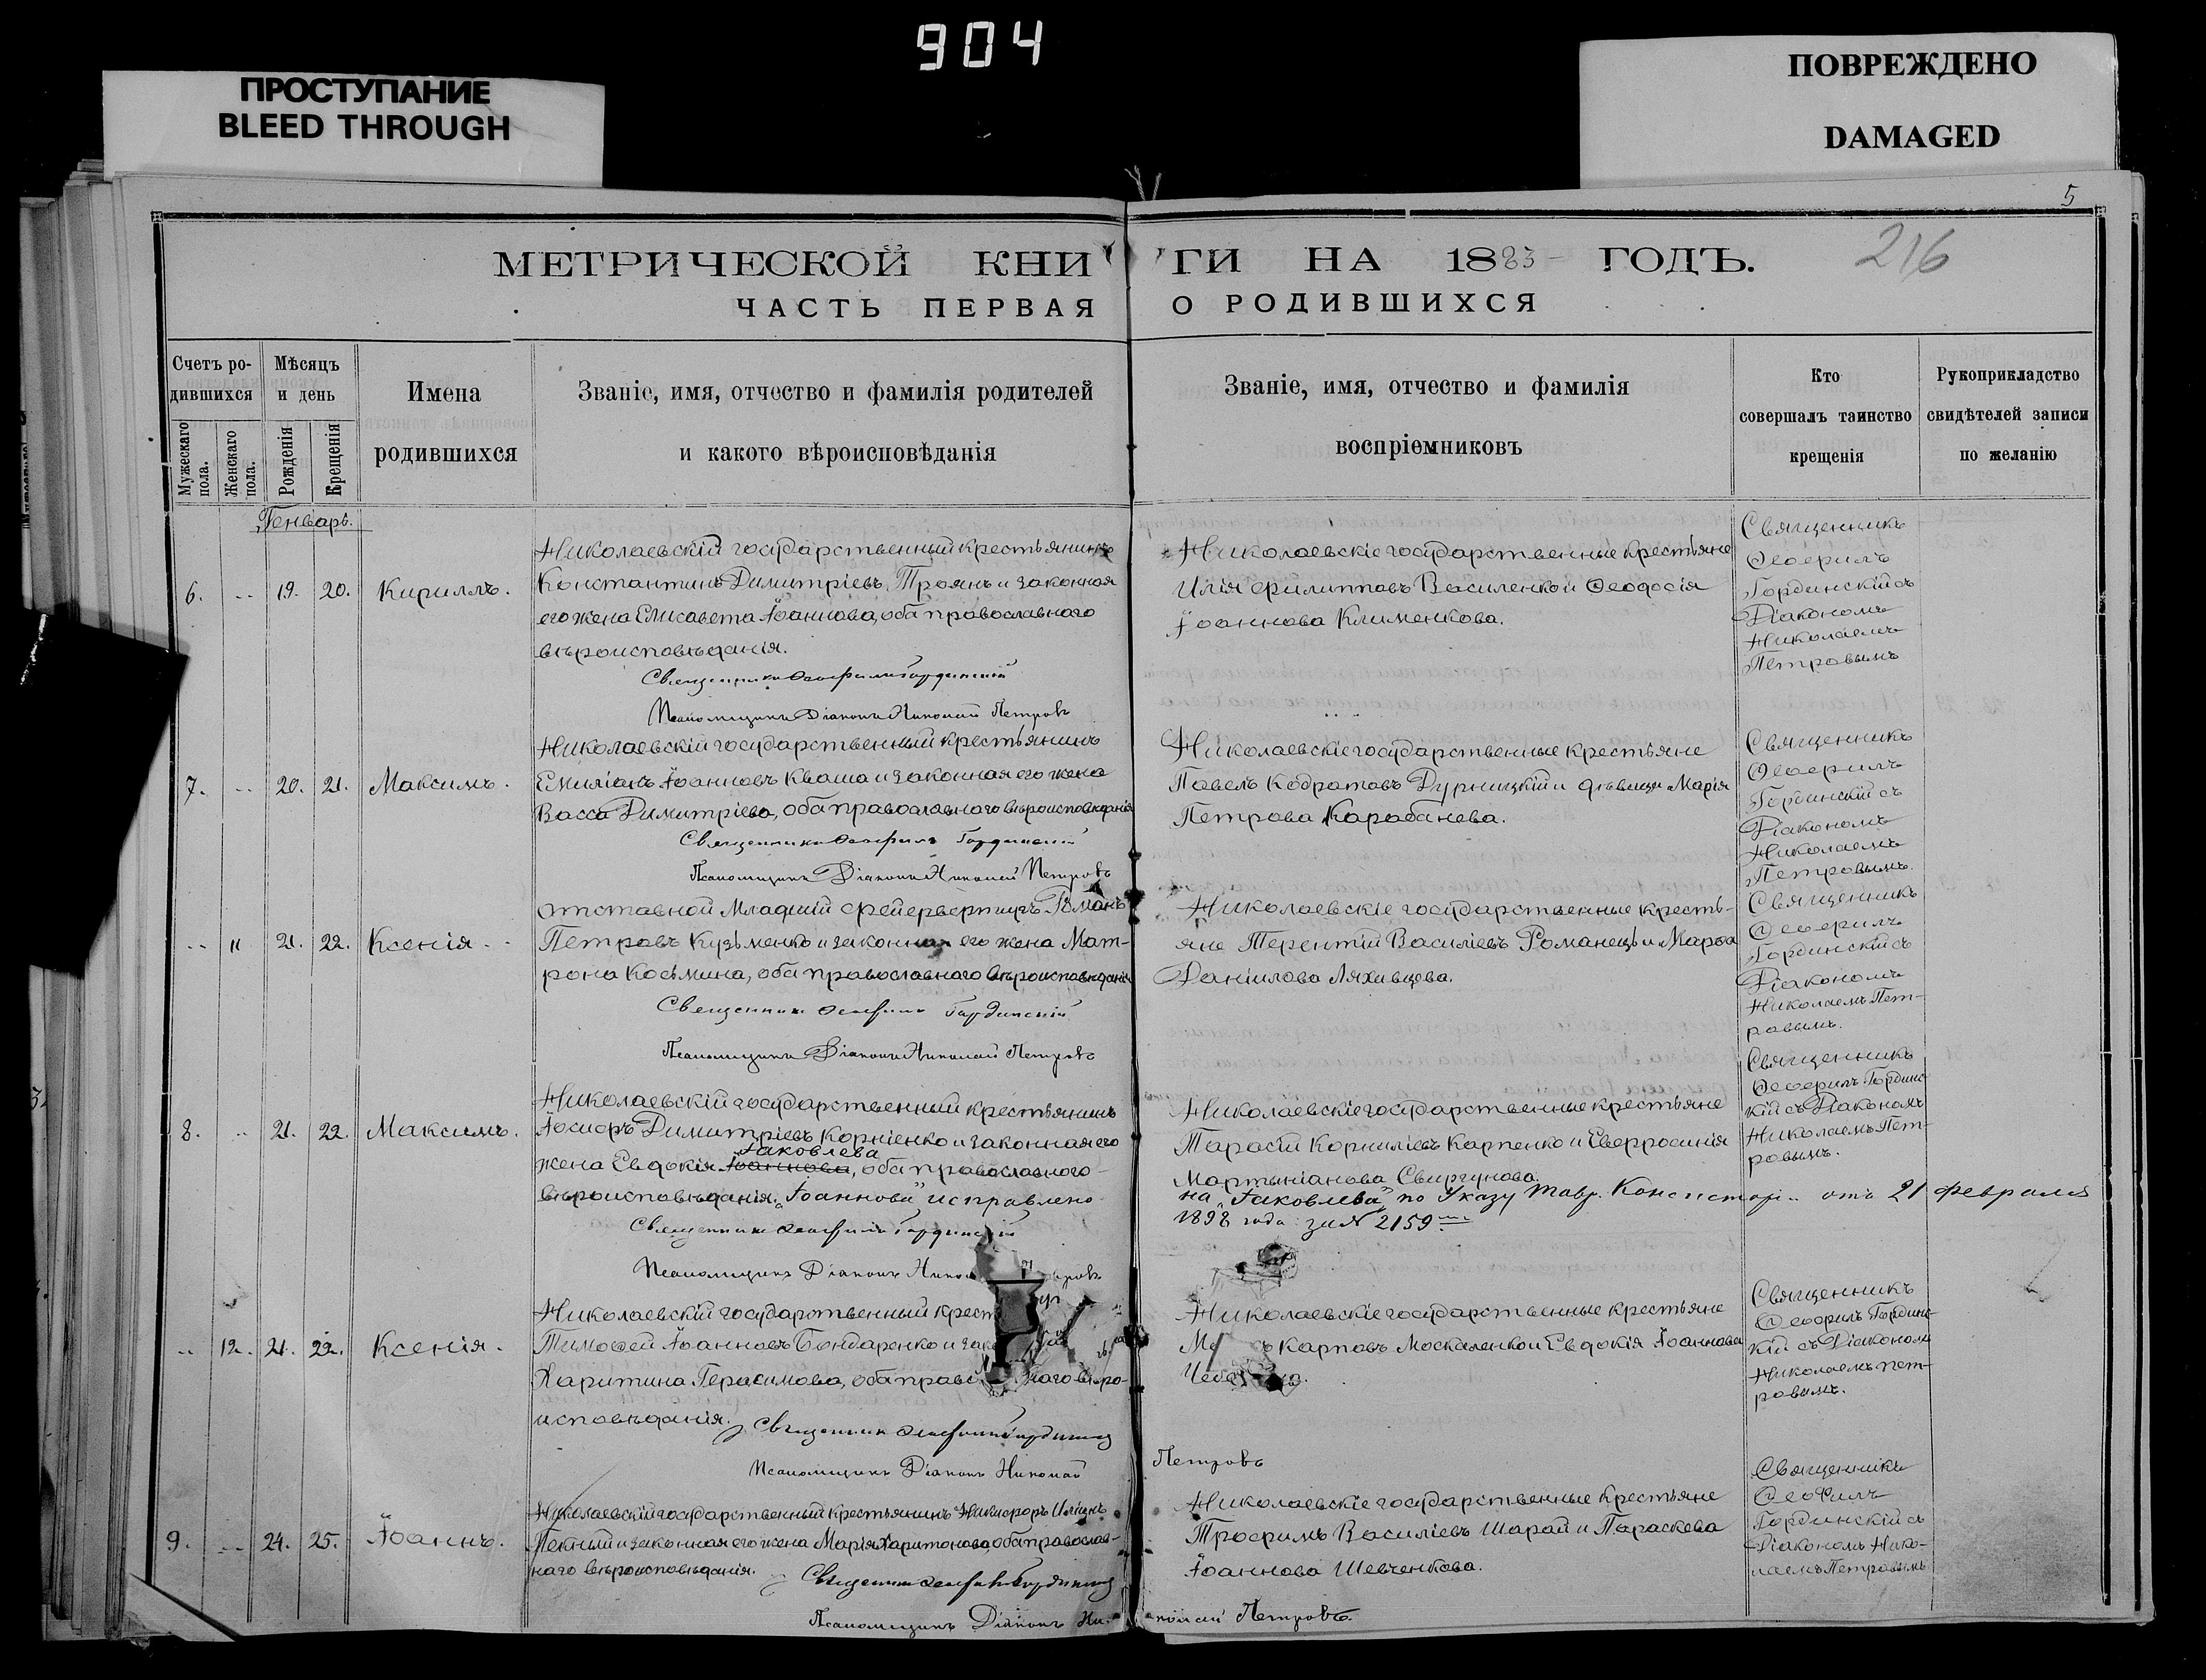 904
ПРОСТУПАНИЕ
BLEED THROUGH
ПОВРЕЖДЕНО
DAMAGED
5
216
МЕТРИЧЕСКОЙ КНИГИ НА 1883 ГОДЪ.
ЧАСТЬ ПЕРВАЯ О РОДИВШИХСЯ
Счетъ ро-
дившихся
Мужескаго пола.
Женскаго пола.
Мѣсяцъ
и день
Рожденія
Крещенія
Имена
родившихся
Званіе, имя, отчество и фамилія родителей
и какого вѣроисповѣданія
Званіе, имя, отчество и фамилія
воспріемниковъ
Кто
совершалъ таинство
крещенія
Рукоприкладство
свидѣтелей записи
по желанію
Генварь.
6. 19. 20. Кириллъ.
Николаевскій государственный крестьянинъ
Константинъ Димитріевъ Троянъ и законная
его жена Елисавета Іоаннова, оба православнаго
вѣроисповѣданія.
Священникъ Ѳеофилъ Гординскій
Псаломщикъ Діаконъ Николай Петровъ
Николаевскіе государственные крестьяне
Илія Филипповъ Василенко и Ѳеодосія
Іоаннова Клименкова.
Священникъ
Ѳеофилъ
Гординскій съ
Діакономъ
Николаемъ
Петровымъ
7. 20. 21. Максимъ.
Николаевскій государственный крестьянинъ
Емиліанъ Іоанновъ Кваша и законная его жена
Васса Димитріева, оба православнаго вѣроисповѣданія
Священникъ Ѳеофилъ Гординскій
Псаломщикъ Діаконъ Николай Петровъ
Николаевскіе государственные крестьяне
Павелъ Кодратовъ Дурницкій и дѣвица Марія
Петрова Карабанева.
Священникъ
Ѳеофилъ
Гординскій съ
Діакономъ
Николаемъ
Петровымъ.
" 21. 22. Ксенія.
Отставной Младшій фейерверкеръ Романъ
Петровъ Кузьменко и законная его жена Мат-
рона Косьмина, оба православнаго вѣроисповѣданія
Священникъ Ѳеофилъ Гординскій
Псаломщикъ Діаконъ Николай Петровъ
Николаевскіе государственные кресть-
яне Терентій Василіевъ Романецъ и Марѳа
Даніилова Ляхивцева.
Священникъ
Ѳеофилъ
Гординскій съ
Діакономъ
Николаемъ Пет-
ровымъ.
8. 21. 22. Максимъ.
Николаевскій государственный крестьянинъ
Іосифъ Димитріевъ Корніенко и законная его
Іаковлева
жена Евдокія Іоаннова, оба православнаго
вѣроисповѣданія. „Іоаннова" исправлено
Священникъ Ѳеофилъ Гординскій
Псаломщикъ Діаконъ
Николаевскіе государственные крестьяне
Тарасій Корниліевъ Карпенко и Евфросинія
Мартиніанова Свиргунова.
на „Іаковлева" по Указу Тавр. Консисторі отъ 21 февраля
1898 года за № 2159
Священникъ
Ѳеофилъ Гординс-
кій съ Діакономъ
Николаемъ Пет-
ровымъ.
12. 21. 22. Ксенія.
Николаевскій государственный крест
Тимоѳей Іоанновъ Бондаренко и зак
Харитина Герасимова, оба прав наго вѣро-
исповѣданія.
Священникъ Ѳеофилъ Гординскій
Псаломщикъ Діаконъ Николай Петровъ
Николаевскіе государственные крестьяне
Карповъ Москаленко и Евдокія Іоаннова
Священникъ
Ѳеофилъ Гординс-
кій съ Діакономъ
Николаемъ Пет-
ровымъ.
9. 24. 25. Іоаннъ.
Николаевскій государственный крестьянинъ Никифоръ
и законная его жена Марія Харитонова, оба православ-
наго вѣроисповѣданія.
Священникъ Ѳеофилъ Гординскій
Псаломщикъ Діаконъ Николай Петровъ.
Николаевскіе государственные крестьяне
Трофимъ Василіевъ Шарай и Параскева
Іоаннова Шевченкова.
Священникъ
Ѳеофилъ
Гординскій съ
Діакономъ Нико-
лаемъ Петровымъ